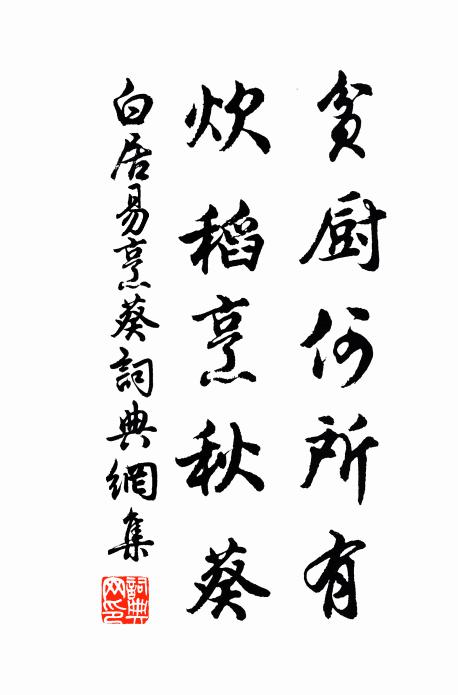 貧厨何所有
炊稻烹秋葵
白居易烹葵詞典網集
詞典網印